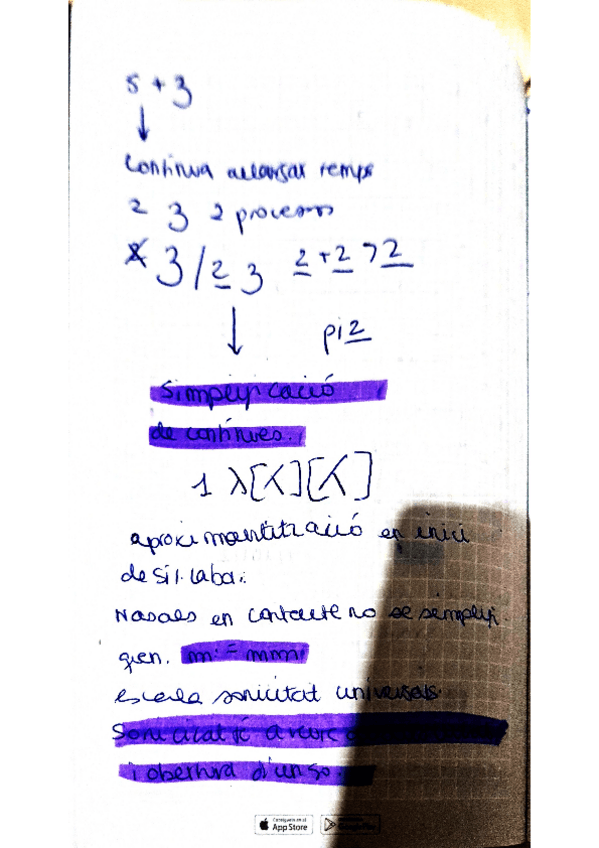 s + 3
↓
Continua allargar temps
2 3 2 processos
3 / 2 3 2 + 2 > 2
↓ pi2
Simplificació
de contínues.
1 λ[ʎ][ʎ]
aproximantització en inici
de síl·laba.
Nasals en contacte no se simplifi
quen. m· = mm
escala sonicitat universals
Sonicitat
i obertura d'un so.
Consíguelo en el
App Store
Google Play